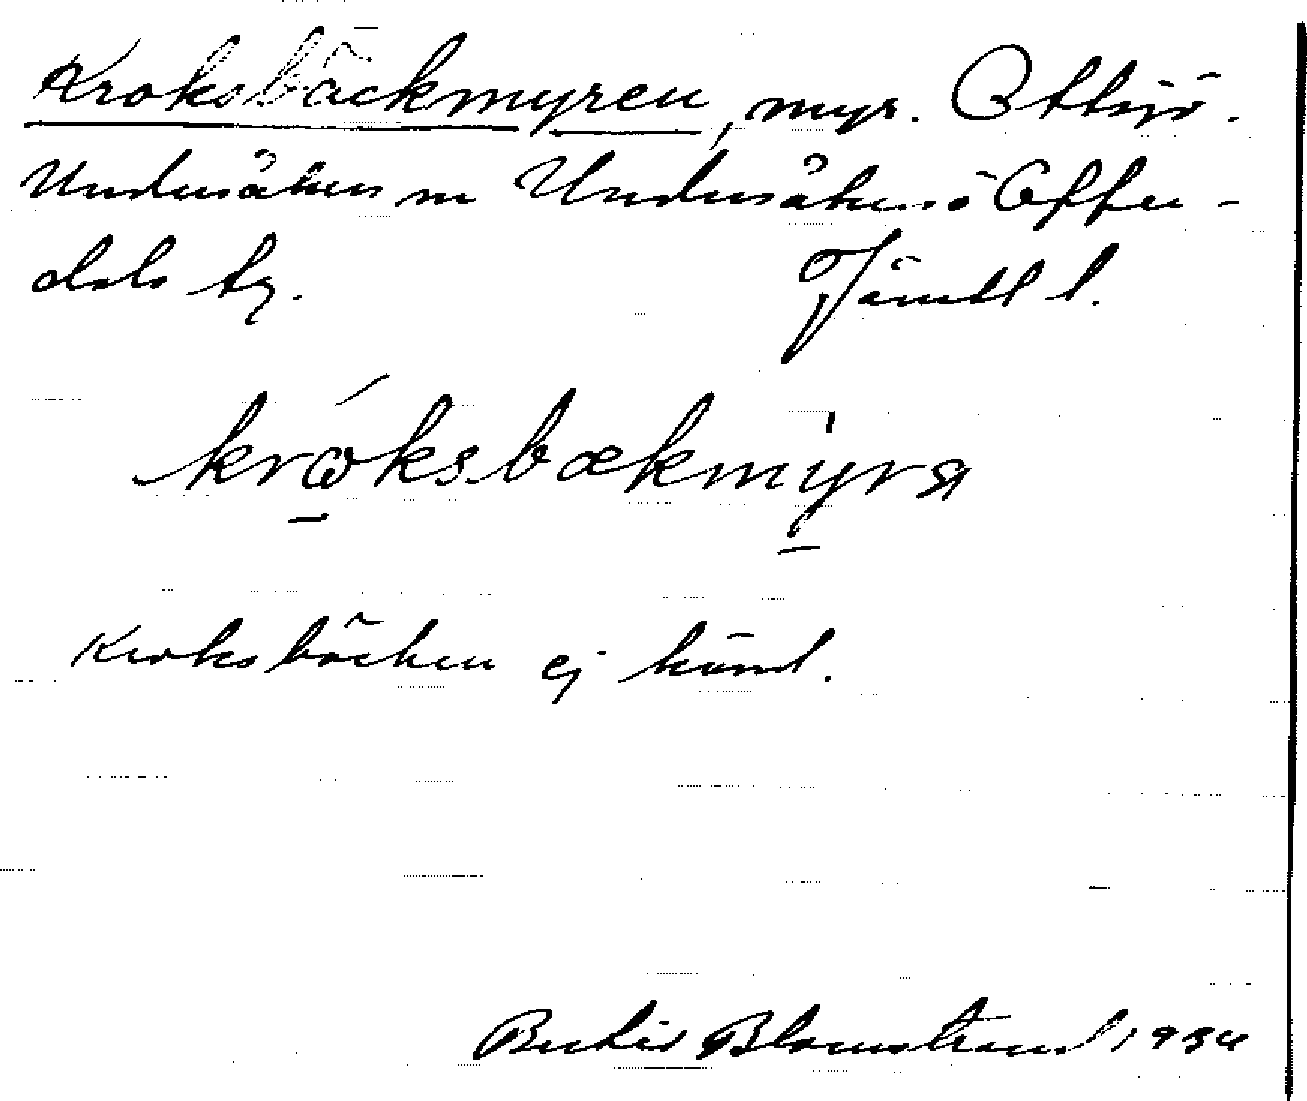 Kroksbäckmyren, myr. Ottsjö.
Undersåkers sn Undersåkers o Offer-
dals tg. Jämtl l.
krωksbækmyra
Kroksbäcken ej känd.
Bertil Blomstrand 1934